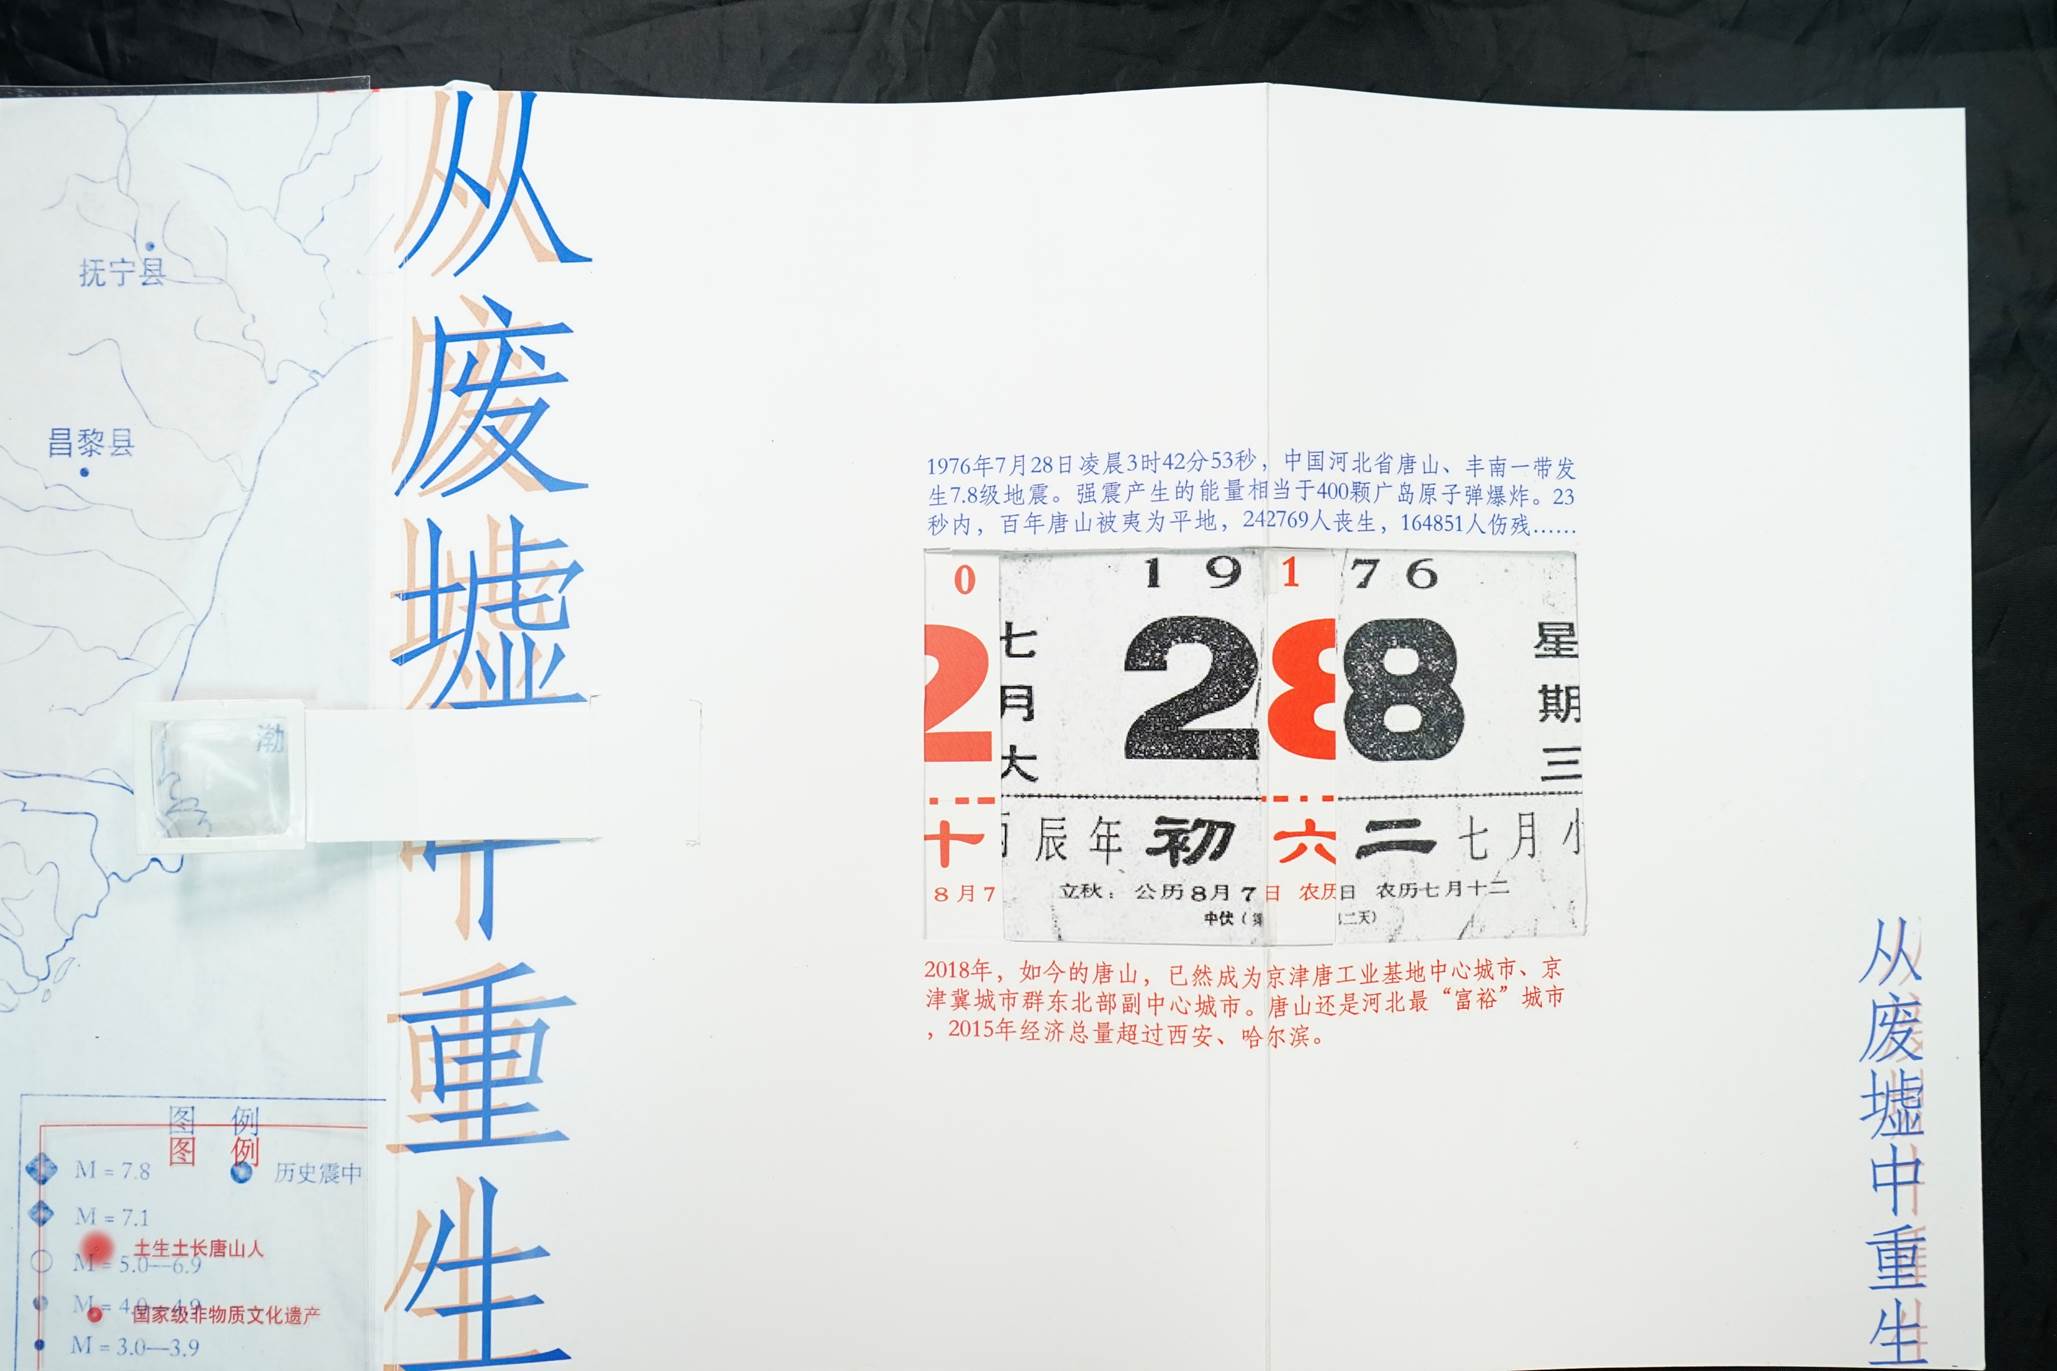 抚宁县
昌黎县
渤
图 例
图 例
M = 7.8
历史震中
M = 7.1
土生土长唐山人
M = 5.0—6.9
M = 4.0—4.9
国家级非物质文化遗产
M = 3.0—3.9
从废墟中重生
1976年7月28日凌晨3时42分53秒，中国河北省唐山、丰南一带发
生7.8级地震。强震产生的能量相当于400颗广岛原子弹爆炸。23
秒内，百年唐山被夷为平地，242769人丧生，164851人伤残……
0
1 9
1
7 6
2
七月大
2
8
8
星期三
十
辰年
初
六
二
七月小
8月7
立秋：公历8月7
日 农历
日 农历七月十二
中伏（
二天）
2018年，如今的唐山，已然成为京津唐工业基地中心城市、京
津冀城市群东北部副中心城市。唐山还是河北最“富裕”城市
，2015年经济总量超过西安、哈尔滨。
从废墟中重生